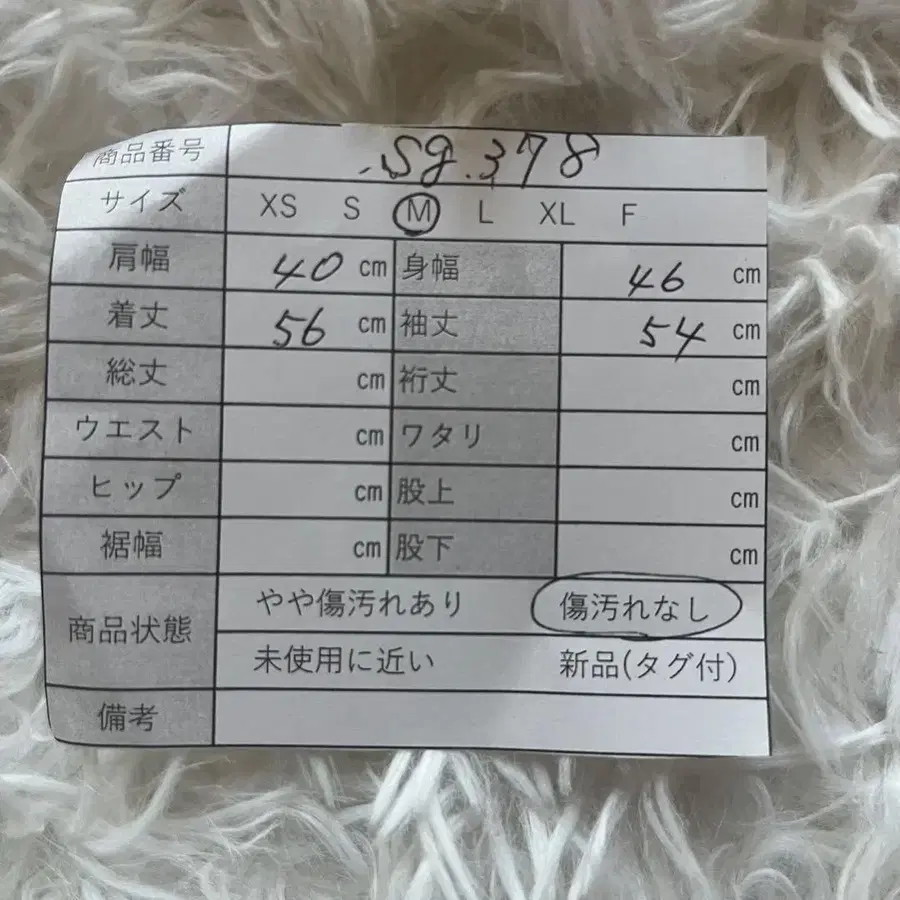 商品番号 .Sg.378
サイズ XS S M L XL F
肩幅 40 cm 身幅 46 cm
着丈 56 cm 袖丈 54 cm
総丈 cm 裄丈 cm
ウエスト cm ワタリ cm
ヒップ cm 股上 cm
裾幅 cm 股下 cm
商品状態 やや傷汚れあり 傷汚れなし
未使用に近い 新品(タグ付)
備考